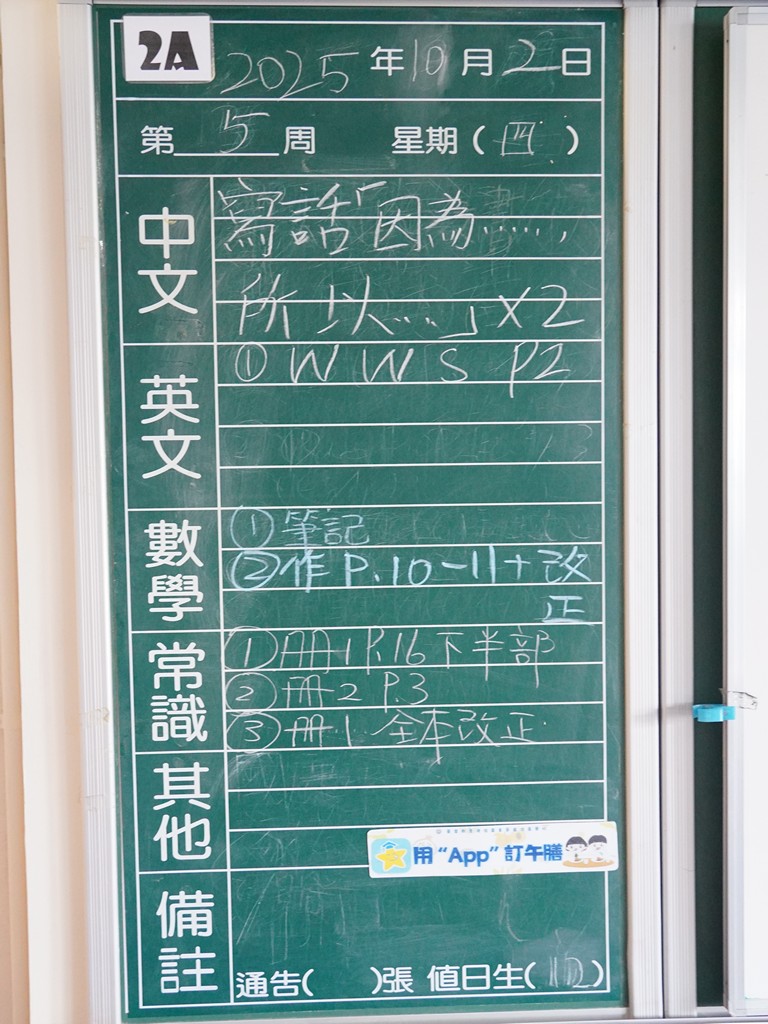 2A
2025年10月2日
第5周 星期(四)
中文
寫話「因為……,
所以……」×2
英文
① WWS P2
數學
① 筆記
② 作 P.10-11+改
正
常識
① 冊1 P.16 下半部
② 冊2 P.3
③ 冊1 全本改正
其他
用“App”訂午膳
備註
通告( )張 值日生( )